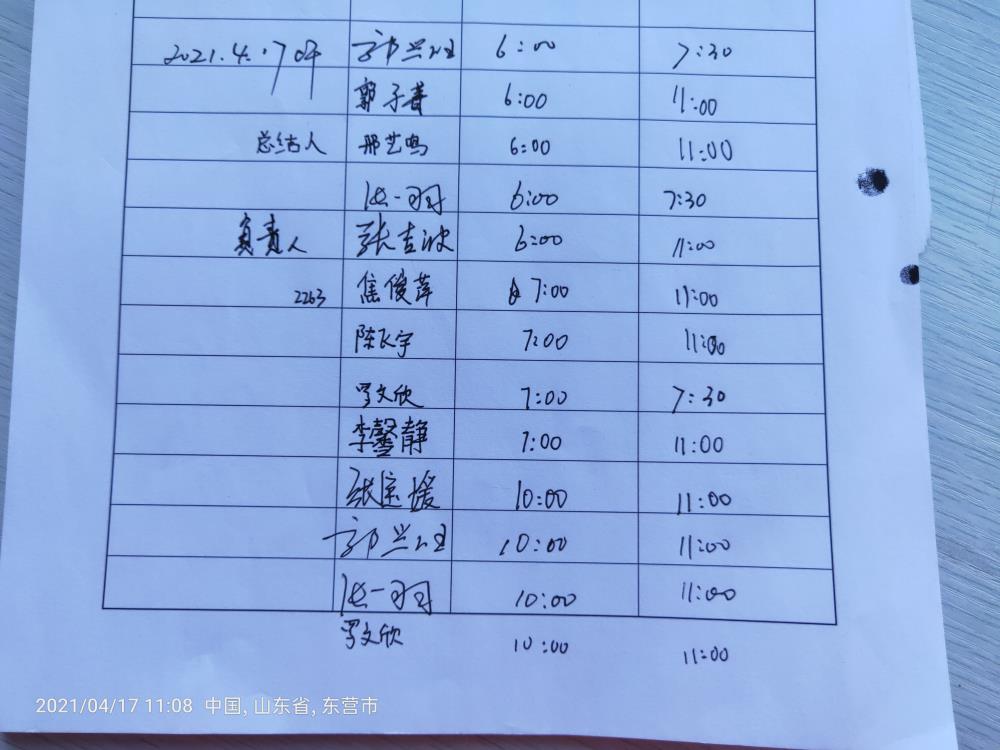 2021.4.17 6:00 7:30
郭子菁 6:00 11:00
总结人 邢艺鸣 6:00 11:00
一羽 6:00 7:30
负责人 张吉波 6:00 11:00
2263 焦俊萍 7:00 11:00
陈飞宇 7:00 11:00
罗文欣 7:00 7:30
李馨静 7:00 11:00
张宝媛 10:00 11:00
10:00 11:00
一羽 10:00 11:00
罗文欣 10:00 11:00
2021/04/17 11:08 中国, 山东省, 东营市